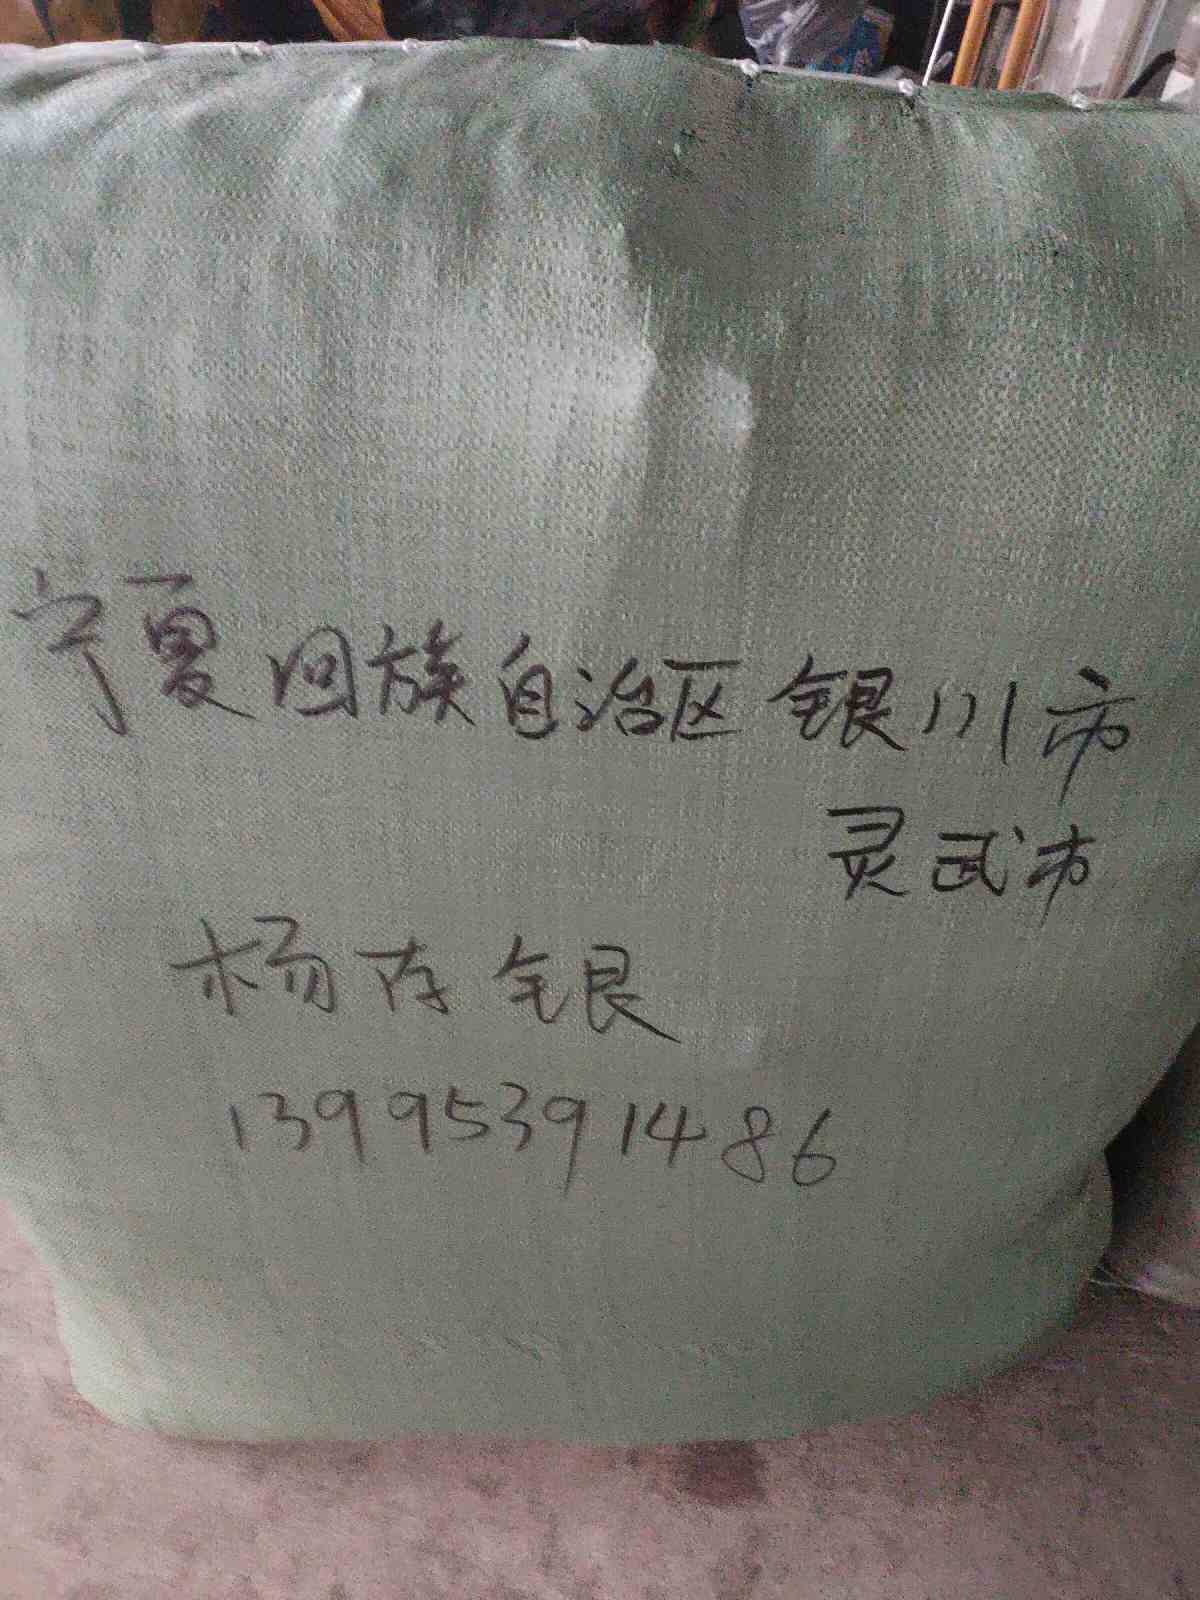 宁夏回族自治区银川市
灵武市
杨存银
13995391486